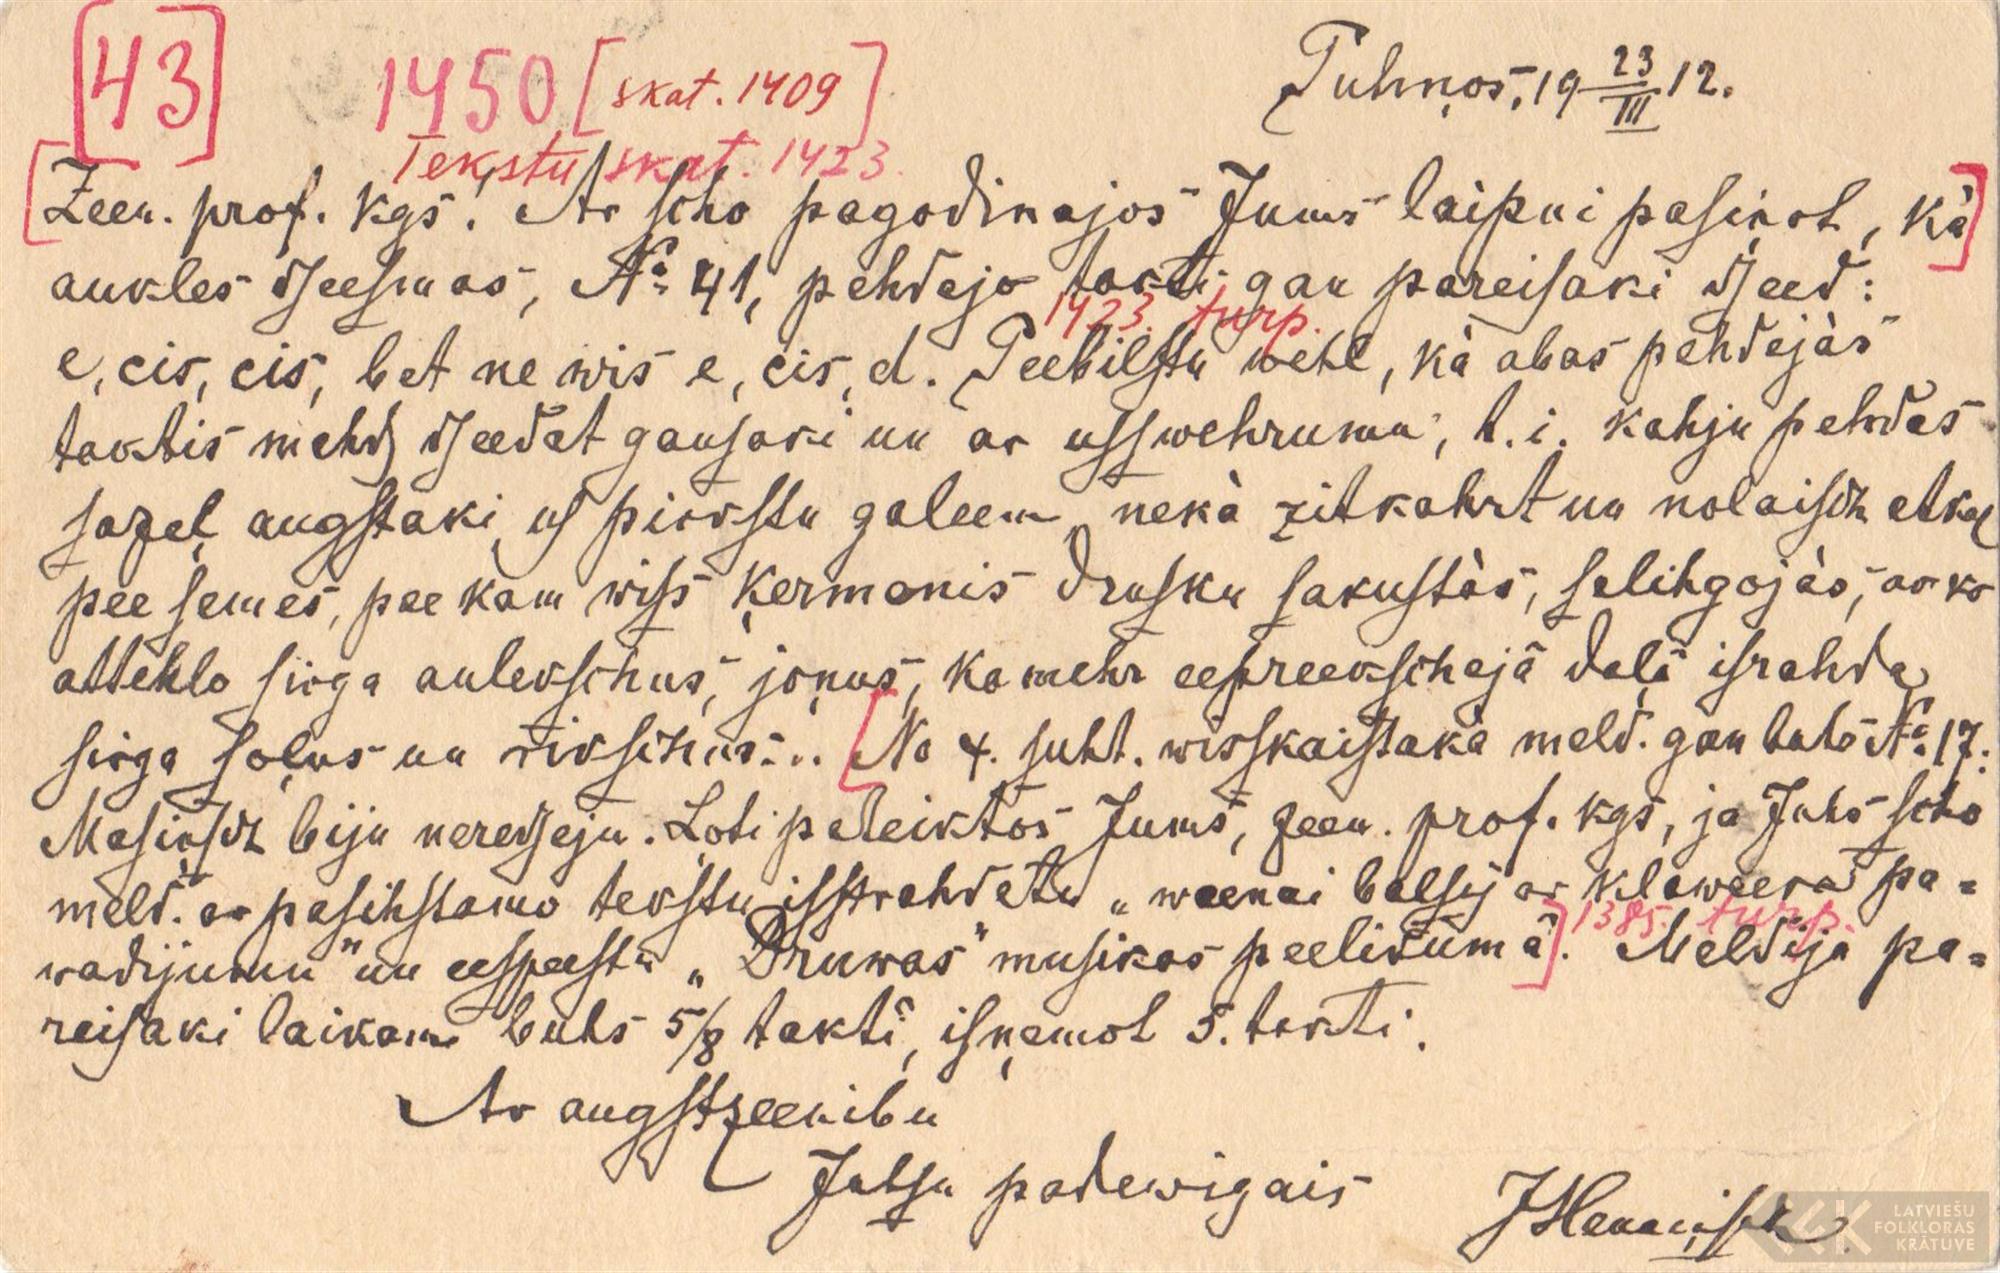 [43] 1450 [skat. 1409] Puhņos, 19 23/III 12.
Tekstu skat. 1423.
[Zeen. prof. kgs! Ar scho pagodinajos Jums laipni pasiņot, kà]
aukles dseesmas, № 41, pehdejo takti gan pareisaki dseed:
1423. turp.
e, cis, cis, bet ne wis e, cis, d. Peebilstu wehl, kà abas pehdejàs
taktis mehds dseedat gausaki un ar usswehrumu, t. i. kahju pehdas
sazeļ augstaki us pirkstu galeem nekà zitkahrt un nolaisch atkal
pee semes, pee kam wiss ķermenis drusku sakustàs, salihgojàs, ar ko
attehlo sirga aulekschus, joņus, kamehr eepreekschejā daļā israhda
sirga soļus un rikschus... [No 4. suht. wisskaistakà meld. gan buhs № 17.
Masirsch biju neredsejis. Ļoti pateiktos Jums, zeen. prof. kgs, ja Juhs scho
meld. ar pasihstamo tekstu isstrahdatu „weenai balsij ar klaweeru pa-
1385. turp.
wadijumu" un eespeestu „Druwas" musikas peelikumā]. Meldija pa-
reisaki laikam buhs 5/8 taktī, isņemot 5. takti.
Ar augstzeenibu
Juhsu padewigais
LATVIEŠU
FOLKLORAS
KRĀTUVE